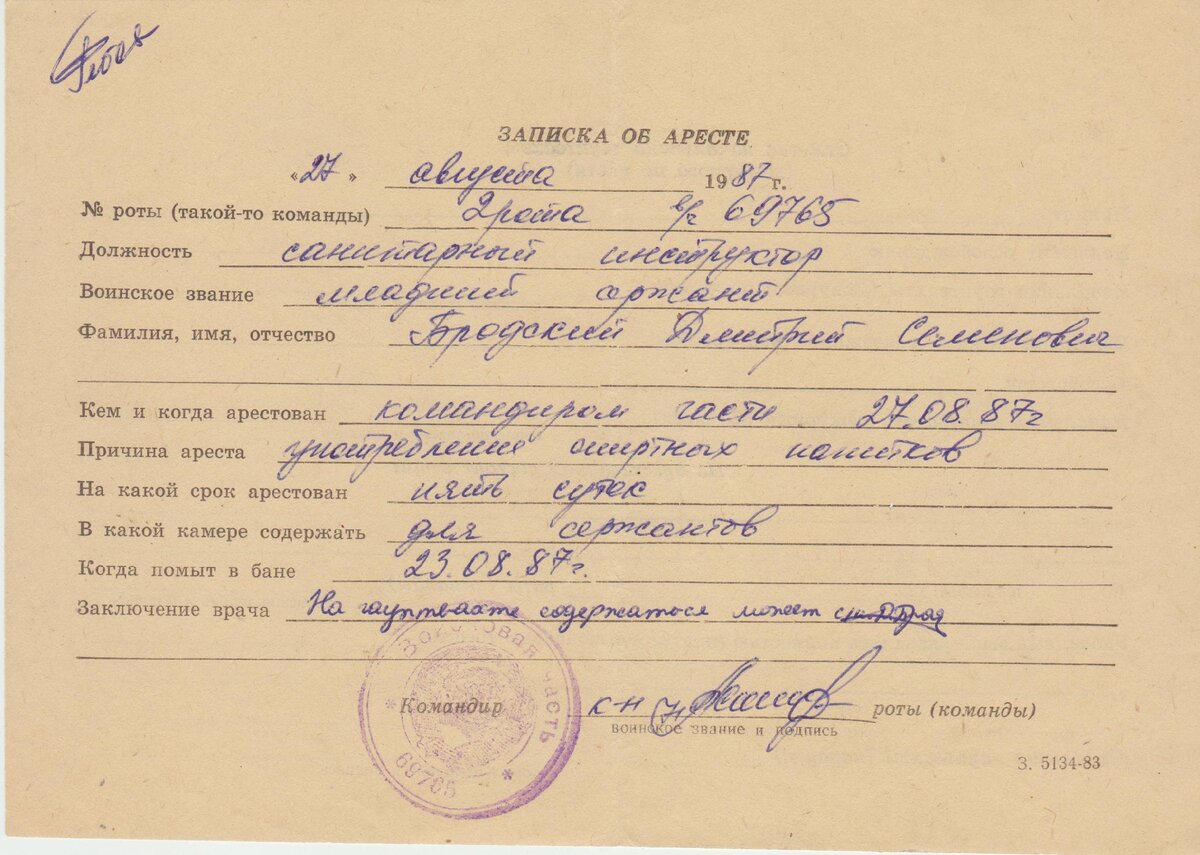 ЗАПИСКА ОБ АРЕСТЕ
«27» августа 1987 г.
№ роты (такой-то команды) 2 рота в/ч 69765
Должность санитарный инструктор
Воинское звание младший сержант
Фамилия, имя, отчество Бродский Дмитрий Семенович
Кем и когда арестован командиром части 27.08.87г
Причина ареста употребление спиртных напитков
На какой срок арестован пять суток
В какой камере содержать для сержантов
Когда помыт в бане 23.08.87г.
Заключение врача На гауптвахте содержаться может
Войсковая часть
69765
Командир к-н роты (команды)
воинское звание и подпись
З. 5134-83